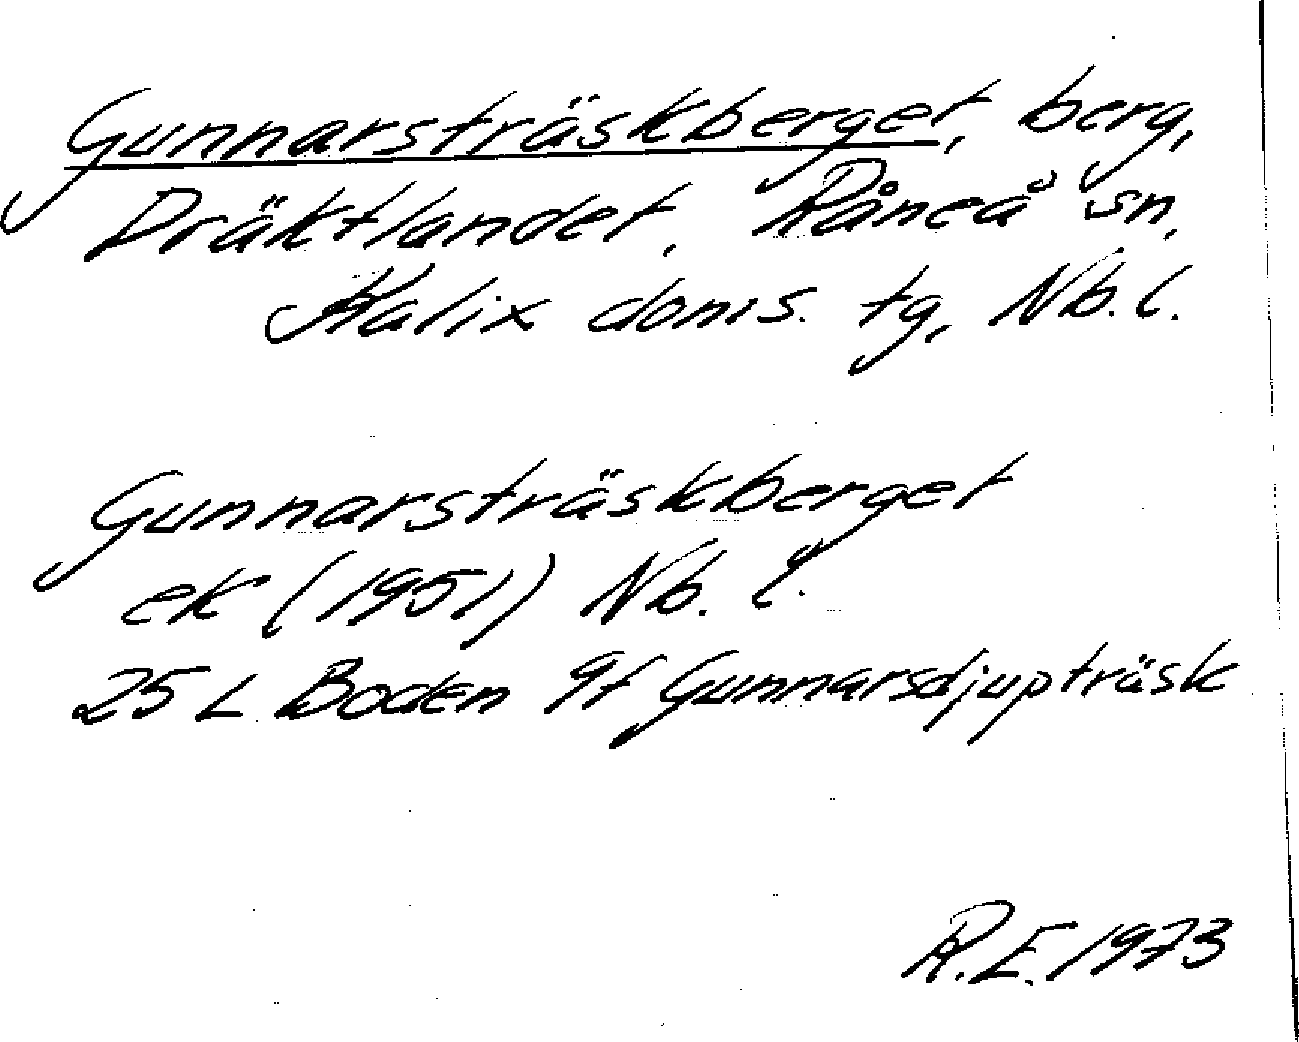 Gunnarsträskberget, berg,
Dräktlandet, Råneå sn,
Kalix doms. tg, Nb. l.
Gunnarsträskberget
ek (1951) Nb. l.
25 L Boden 9f Gunnarsdjupträsk
R.E. 1973